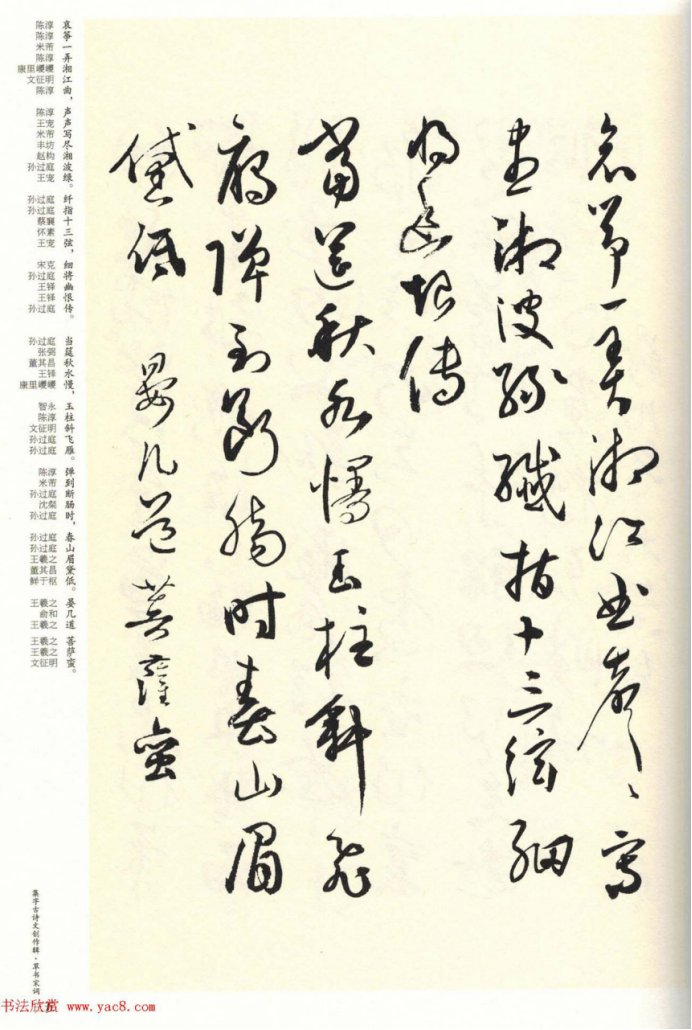 哀筝一弄湘江曲声声写
尽湘波绿纤指十三弦细
将幽恨传
当筵秋水慢玉柱斜飞
雁弹到断肠时春山眉
黛低 晏几道菩萨蛮
哀筝一弄湘江曲，
声声写尽湘波绿。
纤指十三弦，
细将幽恨传。
当筵秋水慢，
玉柱斜飞雁。
弹到断肠时，
春山眉黛低。
晏几道 菩萨蛮。
陈淳
陈淳
米芾
陈淳
康里巎巎
文征明
陈淳
陈淳
王宠
米芾
丰坊
赵构
孙过庭
王宠
孙过庭
孙过庭
蔡襄
怀素
王宠
宋克
孙过庭
王铎
王铎
孙过庭
孙过庭
张弼
董其昌
王铎
康里巎巎
智永
陈淳
文征明
孙过庭
孙过庭
陈淳
米芾
孙过庭
沈粲
孙过庭
孙过庭
孙过庭
王羲之
董其昌
鲜于枢
王羲之
俞和
王羲之
王羲之
王羲之
文征明
集字古诗文创作辑·草书宋词
书法欣赏 www.yac8.com